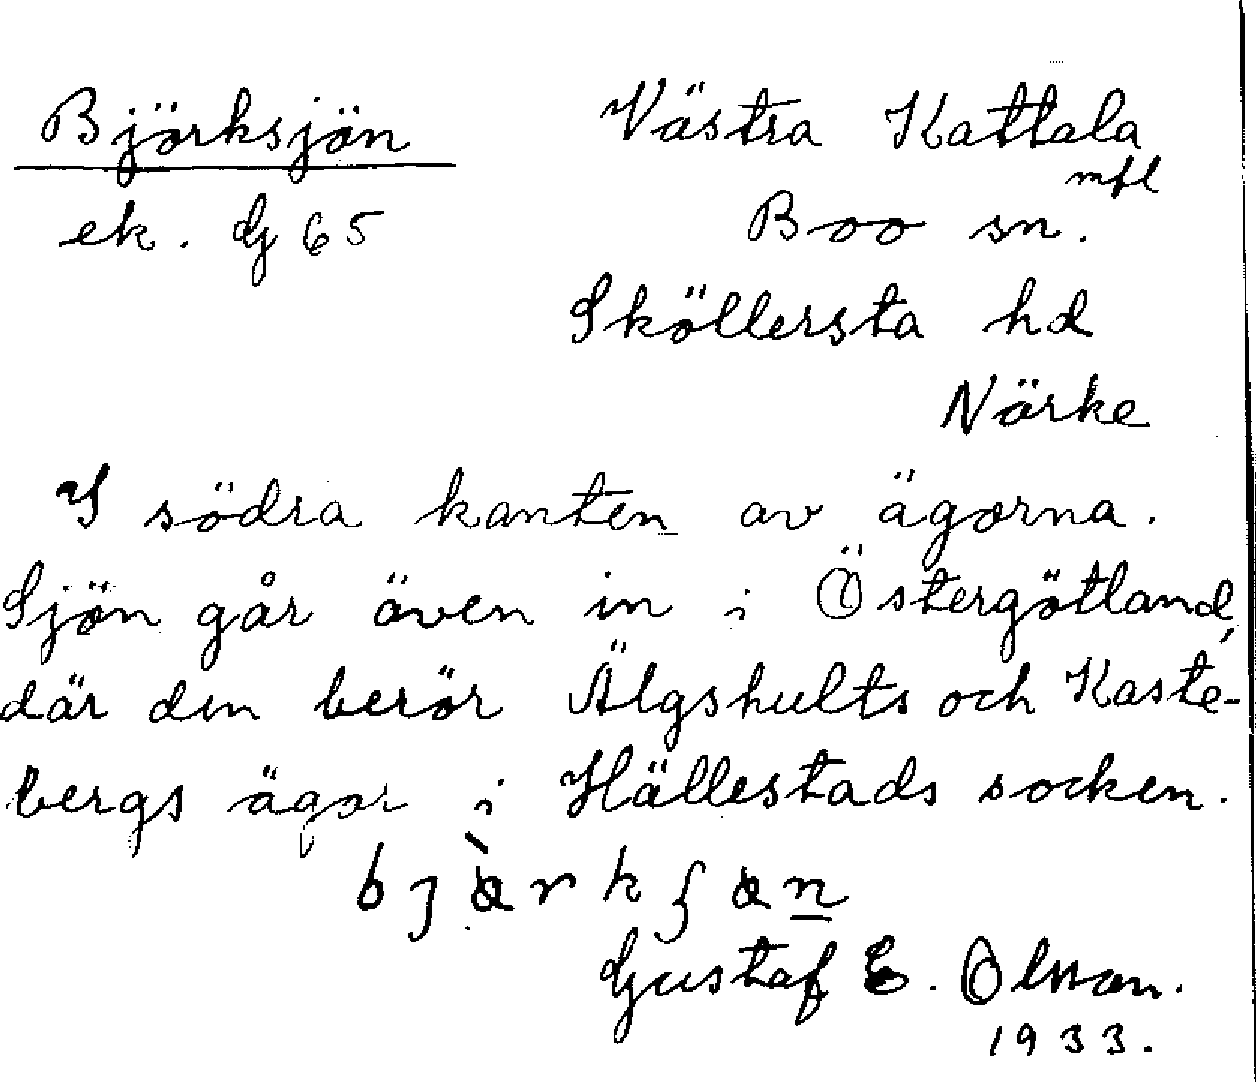 Björksjön
ek. G 65
Västra Kattala
mfl
Boo sn.
Sköllersta hd
Närke
I södra kanten av ägorna.
Sjön går även in i Östergötland,
där den berör Älgshults och Kaste-
bergs ägor i Hällestads socken.
Gustaf E. Olsson.
1933.